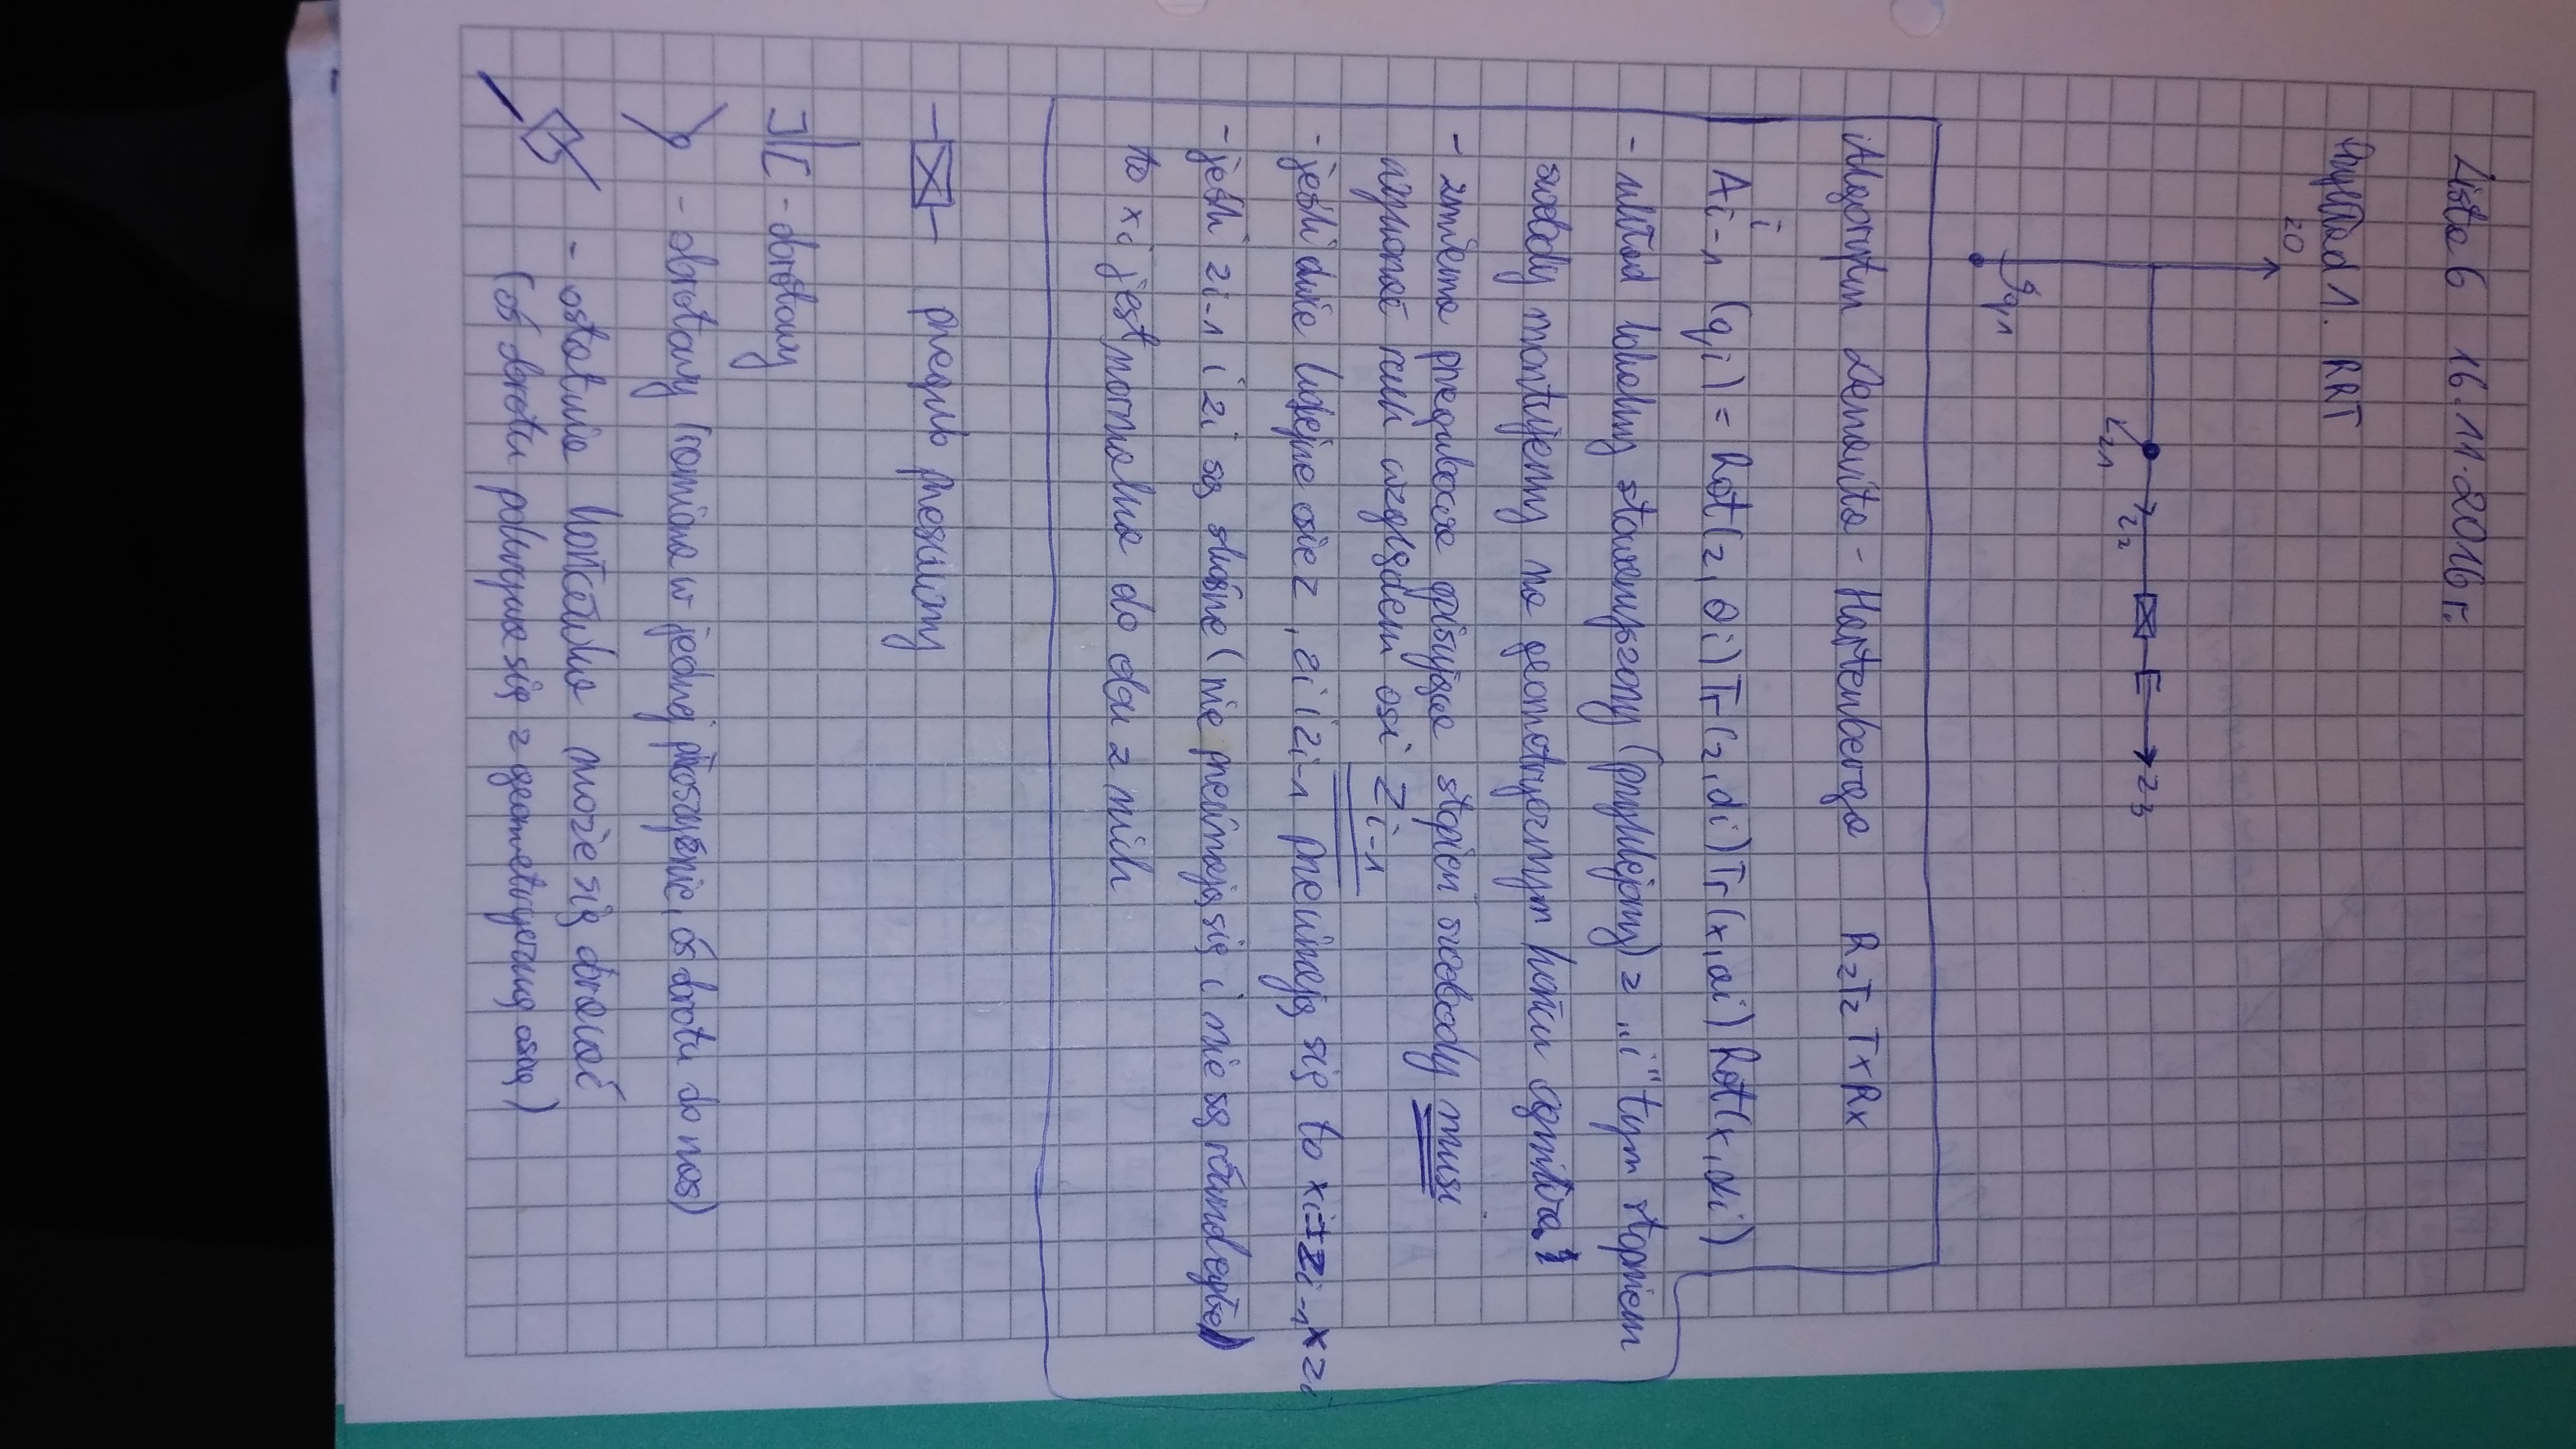 Lista 6 16.11.2016r.
Przykład 1. RRT
z0
q1
z1
z2
z3
Algorytm Denavita-Hartenberga RzTzTxRx
A i-1 i (qi) = Rot(z, θi) Tr(z, di) Tr(x, ai) Rot(x, αi)
- układ lokalny stowarzyszony (przyklejony) z "i" tym stopniem
swobody montujemy na geometrycznym końcu ogniwa
- zmienna przegubowa opisująca stopień swobody musi
opisywać ruch względem osi zi-1
- jeśli dwie kolejne osie z, zi i zi-1 przecinają się to xi=±zi-1×zi
- jeśli zi-1 i zi są skośne (nie przecinają się i nie są równoległe)
to xi jest normalna do obu z nich
przegub przesuwny
- obrotowy
- obrotowy (ramiona w jednej płaszczyźnie, oś obrotu do nas)
- ostatnia końcówka może się obracać
(oś obrotu pokrywa się z geometryczną osią)